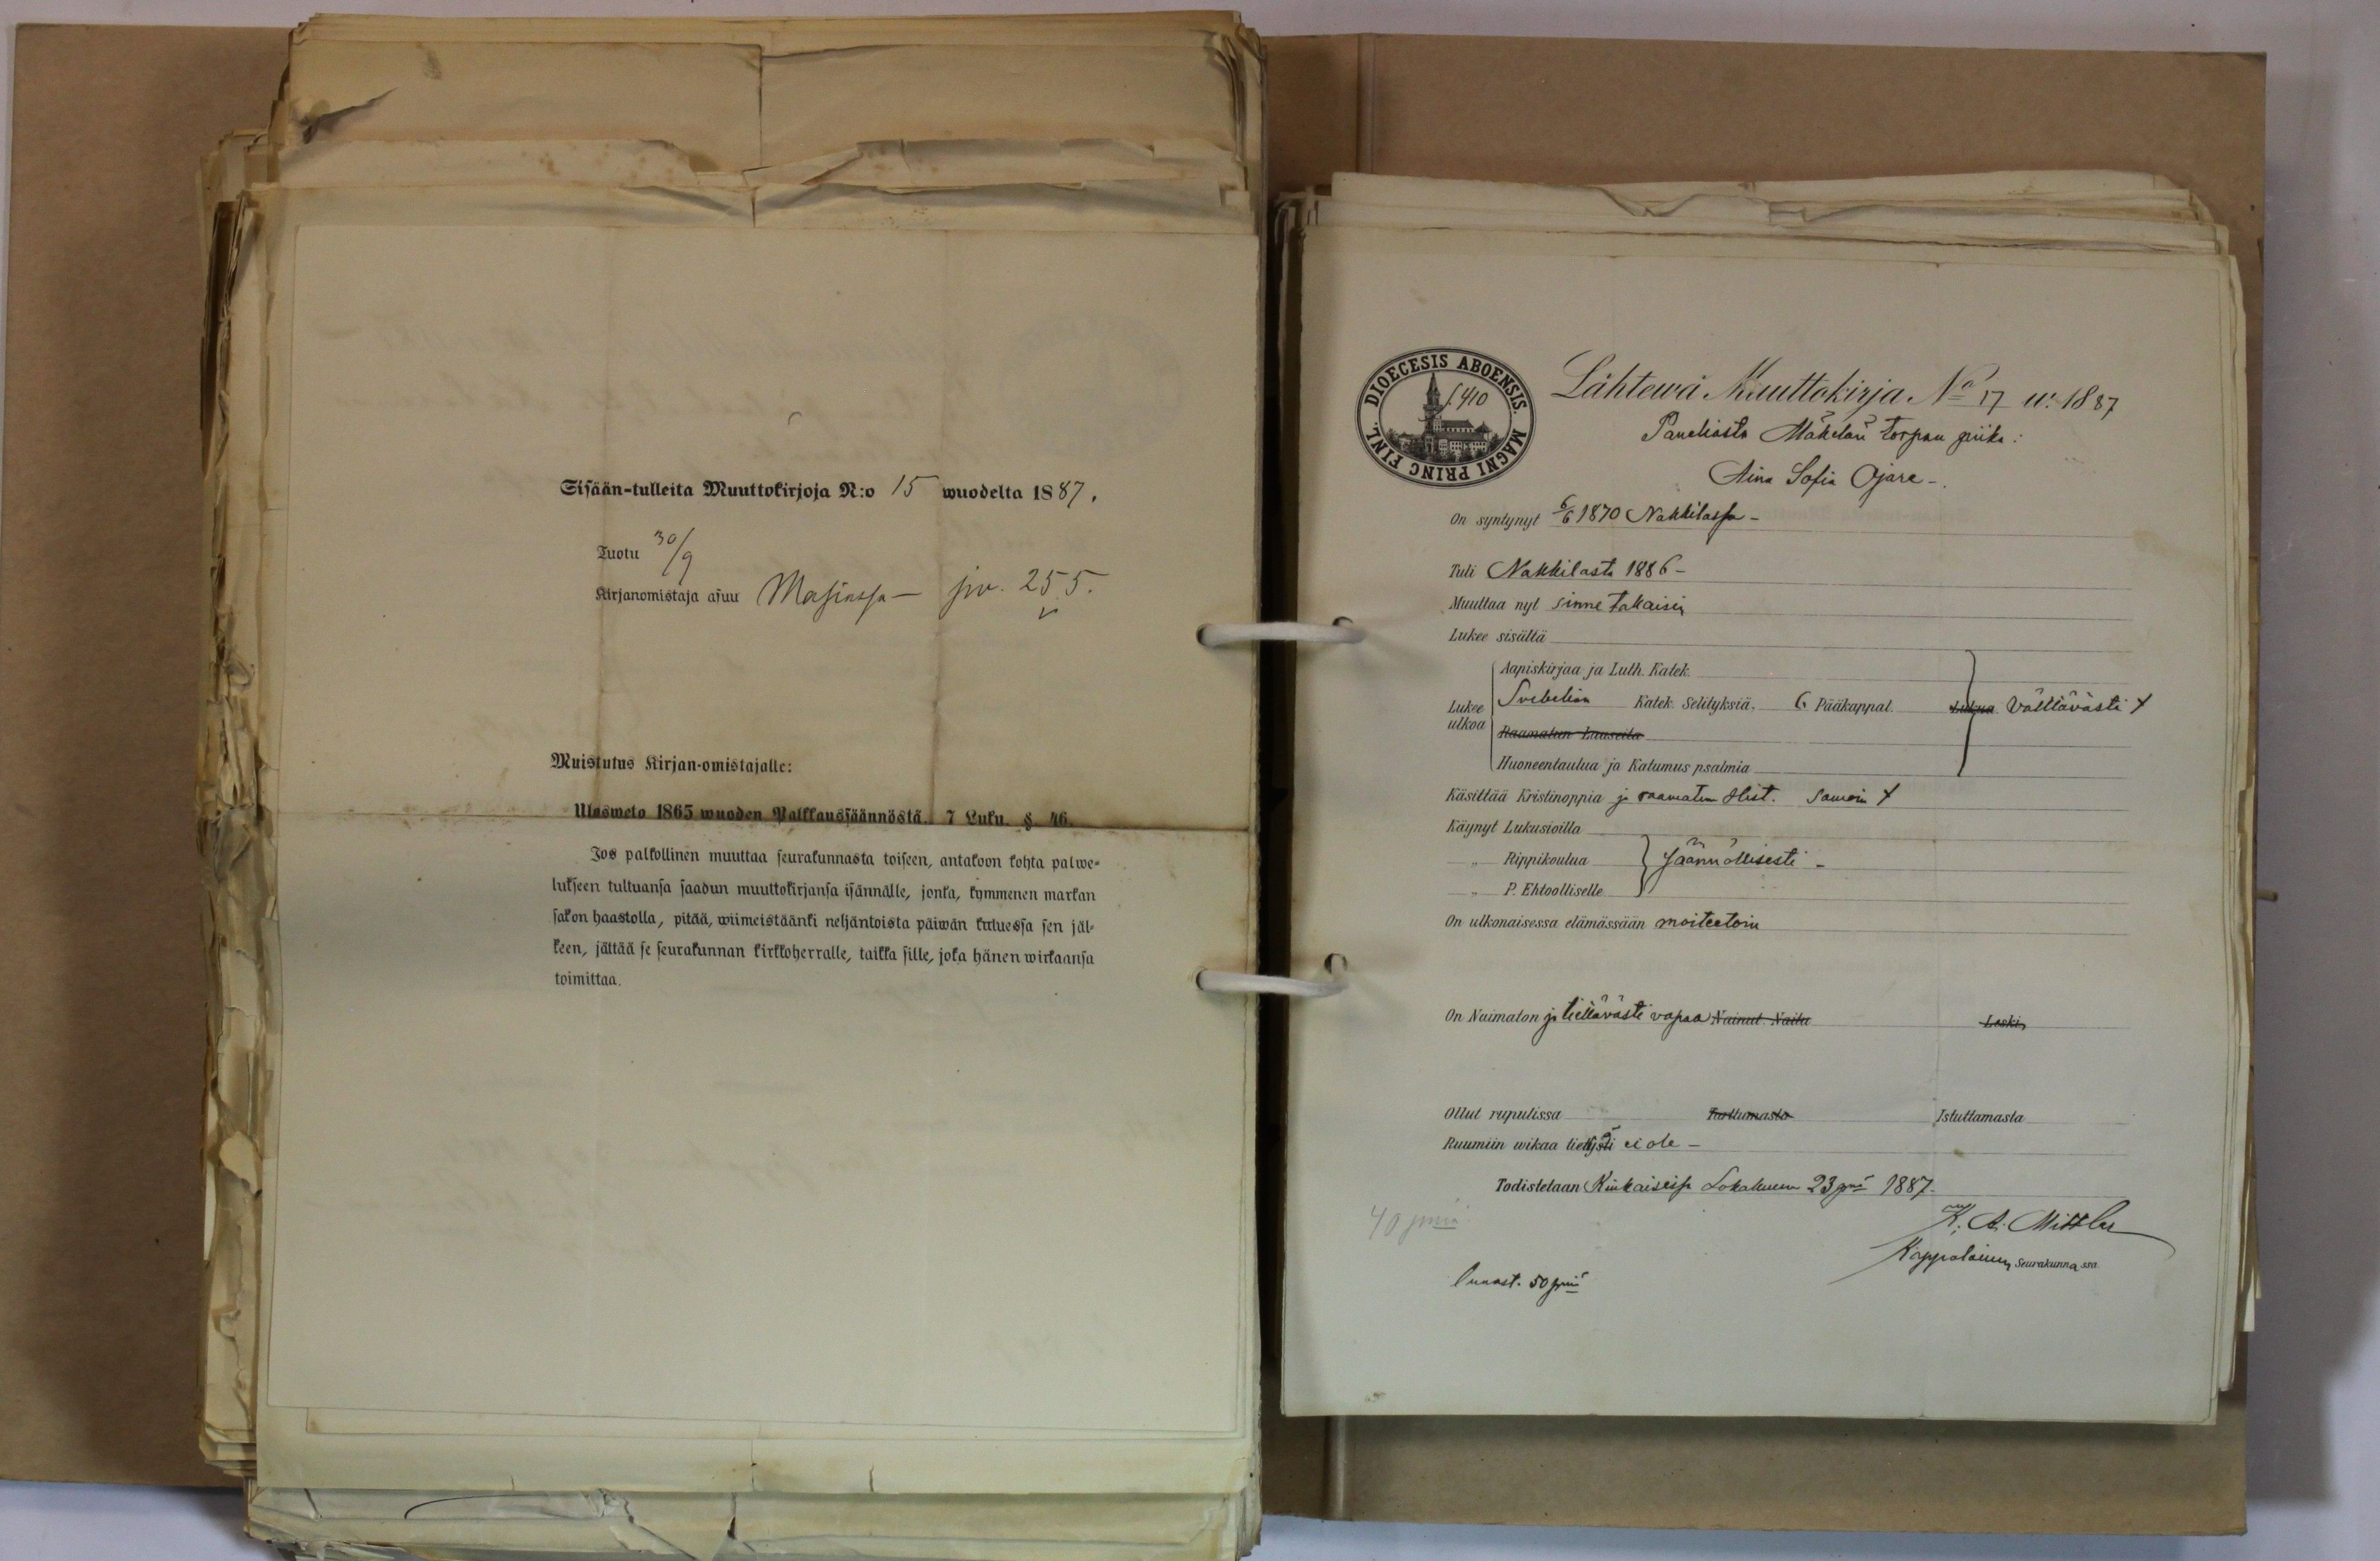 Sisään-tulleita Muuttokirjoja N:o 15 wuodelta 1887.
Tuotu 30/9
Kirjanomistaja asuu Masiassa — siv. 255.
Muistutus Kirjan-omistajalle:
Ulosweto 1865 wuoden Palkkaussäännöstä. 7 Luku. §. 46.
Jos palkollinen muuttaa seurakunnasta toiseen, antakoon kohta palwe-
lukseen tultuansa saadun muuttokirjansa isännälle, jonka, kymmenen markan
sakon haastolla, pitää, wiimeistäänki neljäntoista päiwän kuluessa sen jäl-
keen, jättää se seurakunnan kirkkoherralle, taikka sille, joka hänen wirkaansa
toimittaa.
DIOECESIS ABOENSIS. MAGNI PRINC FINL.
S. 410
Lähtewä Muuttokirja No 17 w. 1887
Paneliasta Mäkelän torpan piika:
Aina Sofia Ojare -.
On syntynyt 6/6 1870 Nakkilassa -
Tuli Nakkilasta 1886 -
Muuttaa nyt sinne takaisin
Lukee sisältä
Lukee ulkoa
Aapiskirjaa ja Luth. Katek.
Svebelian Katek. Selityksiä, 6 Pääkappal. Lukua Välttävästi +
Raamatun Lauseita
Huoneentaulua ja Katumus psalmia
Käsittää Kristinoppia ja raamatun Hist. samoin +
Käynyt Lukusioilla
„ Rippikoulua } Säännöllisesti -
„ P. Ehtoolliselle
On ulkonaisessa elämässään moiteetoin
On Naimaton ja tiettävästi vapaa Nainut Naitu Leski
Ollut rupulissa Tarttumasta Istuttamasta
Ruumiin wikaa tiettysti ei ole -
Todistetaan Kiukaisissa Lokakuun 23 pnä 1887.
K. A. Mittler
Kappalainen Seurakunnassa.
40 pniä
Lunast. 50 pniä